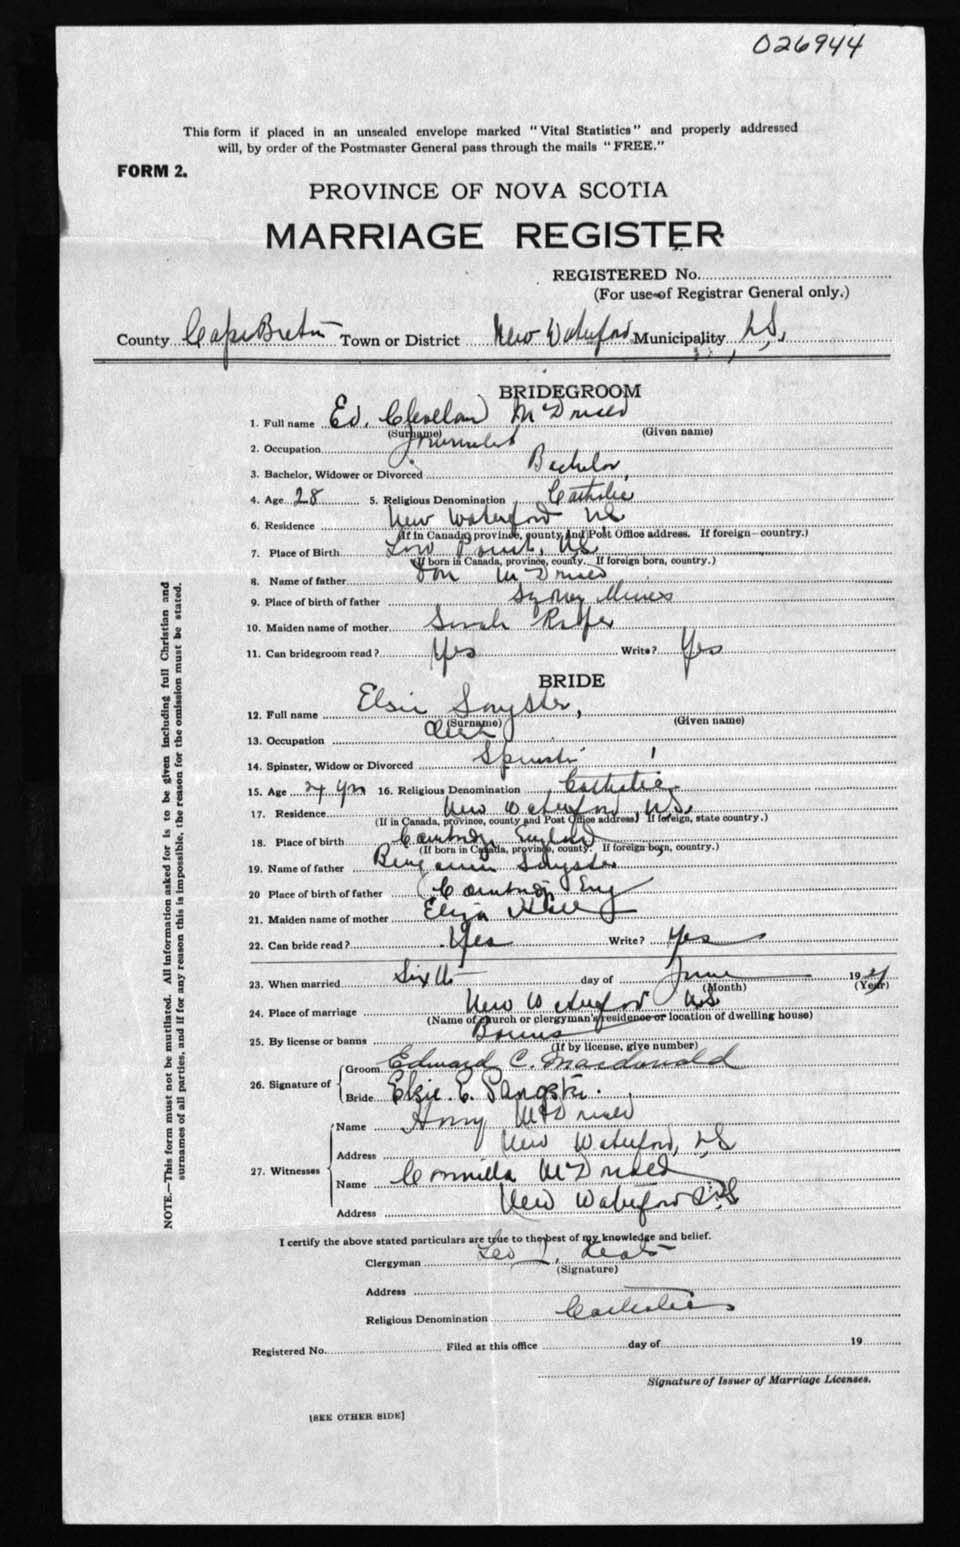 026944
This form if placed in an unsealed envelope marked "Vital Statistics" and properly addressed
will, by order of the Postmaster General pass through the mails "FREE."
FORM 2.
PROVINCE OF NOVA SCOTIA
MARRIAGE REGISTER
REGISTERED No.
(For use of Registrar General only.)
County Cape Breton Town or District New Waterford Municipality N.S.
BRIDEGROOM
1. Full name Ed. McDonald
(Surname) (Given name)
2. Occupation
3. Bachelor, Widower or Divorced Bachelor
4. Age 28 5. Religious Denomination Catholic
6. Residence New Waterford NS
(If in Canada, province, county and Post Office address. If foreign—country.)
7. Place of Birth Low Point, N.S.
(If born in Canada, province, county. If foreign born, country.)
8. Name of father McDonald
9. Place of birth of father Sydney Mines
10. Maiden name of mother Sarah
11. Can bridegroom read? Yes Write? Yes
BRIDE
12. Full name Elsie
(Surname) (Given name)
13. Occupation
14. Spinster, Widow or Divorced
15. Age yrs 16. Religious Denomination Catholic
17. Residence New Waterford N.S.
(If in Canada, province, county and Post Office address) If foreign, state country.)
18. Place of birth England
(If born in Canada, province, county. If foreign born, country.)
19. Name of father Benjamin
20 Place of birth of father Eng
21. Maiden name of mother Eliza
22. Can bride read? Yes Write? Yes
23. When married Sixth day of June 19
(Month) (Year)
24. Place of marriage New Waterford NS
(Name of church or clergyman's residence or location of dwelling house)
25. By license or banns Banns
(If by license, give number)
26. Signature of Groom Edward C. Macdonald
Bride Elsie E.
27. Witnesses Name McDonald
Address New Waterford, NS
Name McDonald
Address New Waterford NS
I certify the above stated particulars are true to the best of my knowledge and belief.
Clergyman Leo
(Signature)
Address
Religious Denomination Catholic
Registered No. Filed at this office day of 19
Signature of Issuer of Marriage Licenses.
[SEE OTHER SIDE]
NOTE.—This form must not be mutilated. All information asked for is to be given including full Christian and
surnames of all parties, and if for any reason this is impossible, the reason for the omission must be stated.